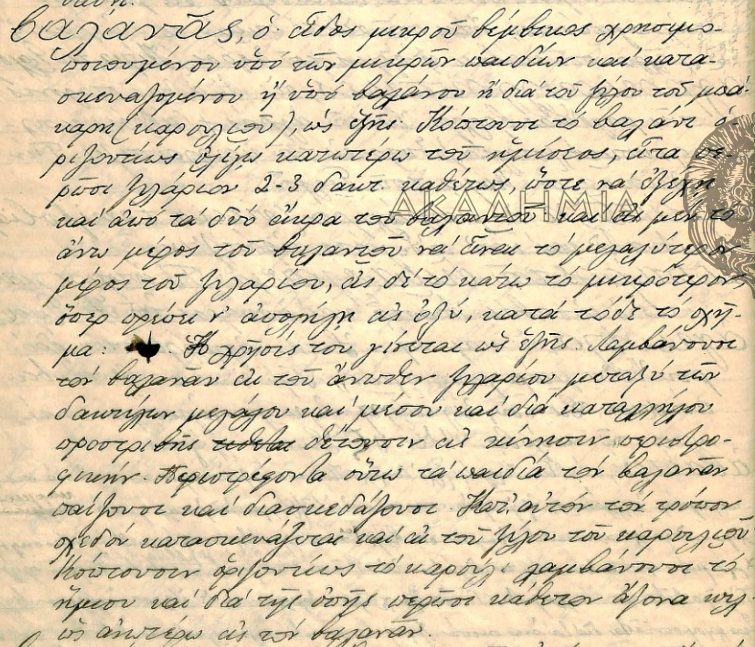 βαλανᾶς, ὁ εἶδος μικροῦ βέμβικος χρησιμο-
ποιουμένου ὑπό τῶν μικρῶν παιδίων καί κατα-
σκευαζομένου ἤ ὑπό βαλάνου ἤ διά τοῦ ξύλου τοῦ μπα-
κάρη (καρουλιοῦ), ὡς ἑξῆς. Κόπτουσι τό βαλάνι ὁ-
ριζοντίως ὀλίγῳ κατωτέρω τοῦ ἡμίσεος, εἶτα πε-
ρῶσι ξυλάριον 2-3 δακτ. καθέτως, ὥστε νά ἐξέχῃ
καί ἀπό τά δυό ἄκρα τοῦ βαλανιοῦ καί εἰς μέν τό
ἄνω μέρος τοῦ βαλανιοῦ νά εἶναι τό μεγαλύτερον
μέρος τοῦ ξυλαρίου, εἰς δέ τό κάτω τό μικρότερον,
ὅπερ πρέπει ν' ἀπολήγῃ εἰς ὀξύ, κατά τόδε τό σχῆ-
μα: . Ἡ χρῆσίς του γίνεται ὡς ἑξῆς. Λαμβάνουσι
τόν βαλανᾶν ἐκ τοῦ ἄνωθεν ξυλαρίου μεταξύ τῶν
δακτύλων μεγάλου καί μέσου καί διά καταλλήλου
προστριβῆς θέτουσιν εἰς κίνησιν περιστρο-
φικήν. Περιστρέφοντα οὕτω τά παιδία τόν βαλανᾶν
παίζουσι καί διασκεδάζουσι. Κατ' αὐτόν τόν τρόπον
σχεδόν κατασκευάζεται καί ἐκ τοῦ ξύλου τοῦ καρουλιοῦ
Κόπτουσιν ὁριζοντίως τό καρούλι λαμβάνουσι τό
ἥμισυ καί διά τῆς ὀπῆς περῶσι κάθετον ἄξονα κλπ.
ὡς ἀνωτέρω εἰς τόν βαλανᾶν.
ΑΚΑΔΗΜΙΑ